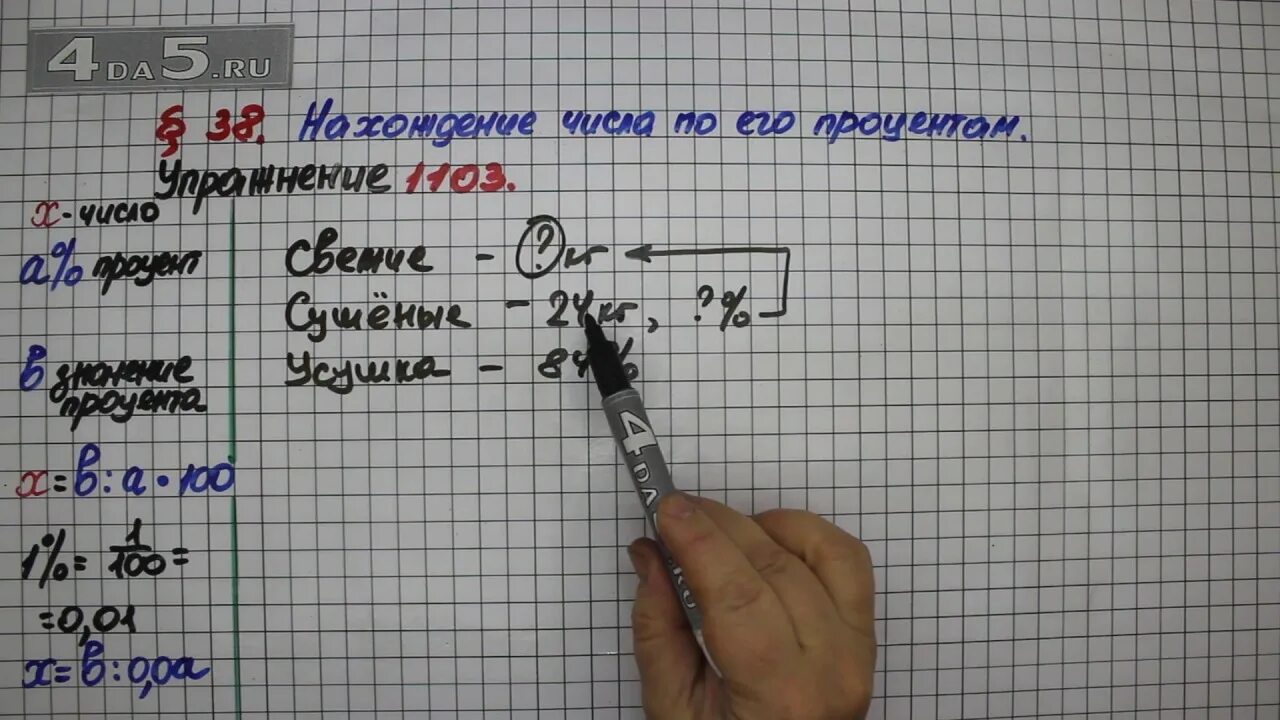 4DA5.RU
§ 38. Нахождение числа по его процентам.
Упражнение 1103.
x - число
a% процент
b значение процента
x = b : a • 100
1% = 1/100 =
= 0,01
x = b : 0,0a
Свежие - ? кг
Сушёные - 24 кг, ?%
Усушка - 84%
4DA
.RU